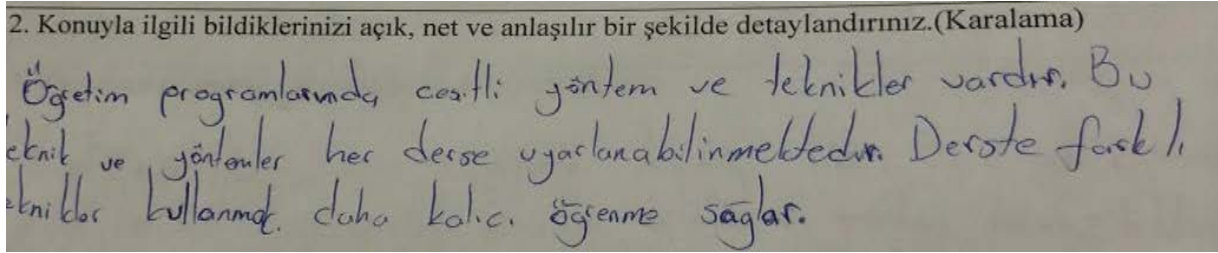 2. Konuyla ilgili bildiklerinizi açık, net ve anlaşılır bir şekilde detaylandırınız.(Karalama)
Öğretim programlarında çeşitli yöntem ve teknikler vardır. Bu
eknik ve yöntemler her derse uyarlanabilinmektedir. Derste farklı
eknikler kullanmak daha kalıcı öğrenme sağlar.